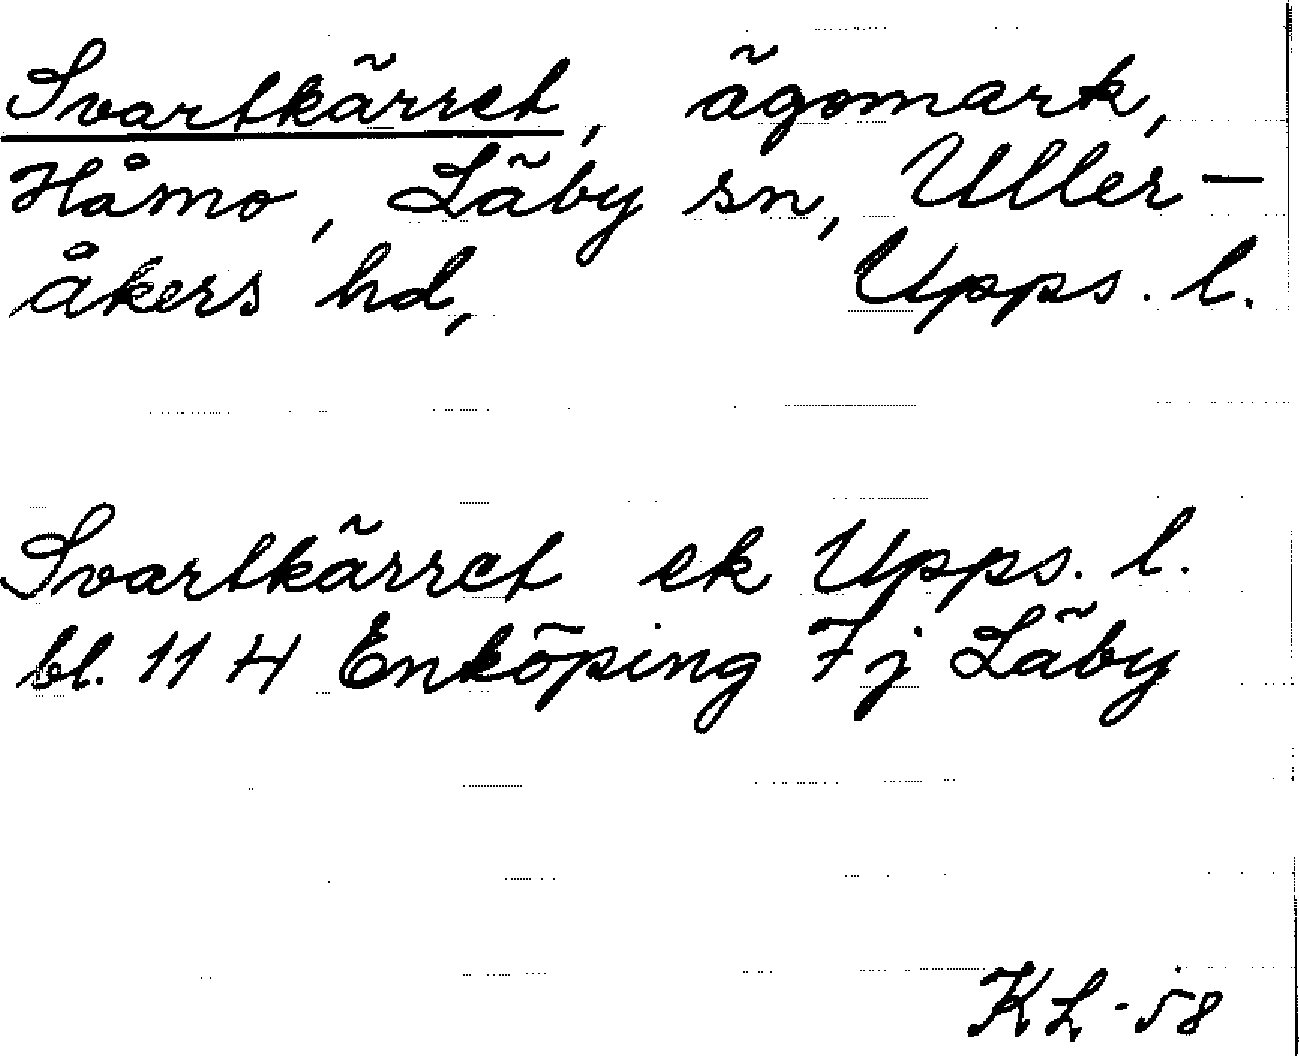 Svartkärret, ägomark,
Håmo, Läby sn, Uller-
åkers hd, Upps. l.
Svartkärret ek Upps. l.
bl. 11 H Enköping 7j Läby
KL-58